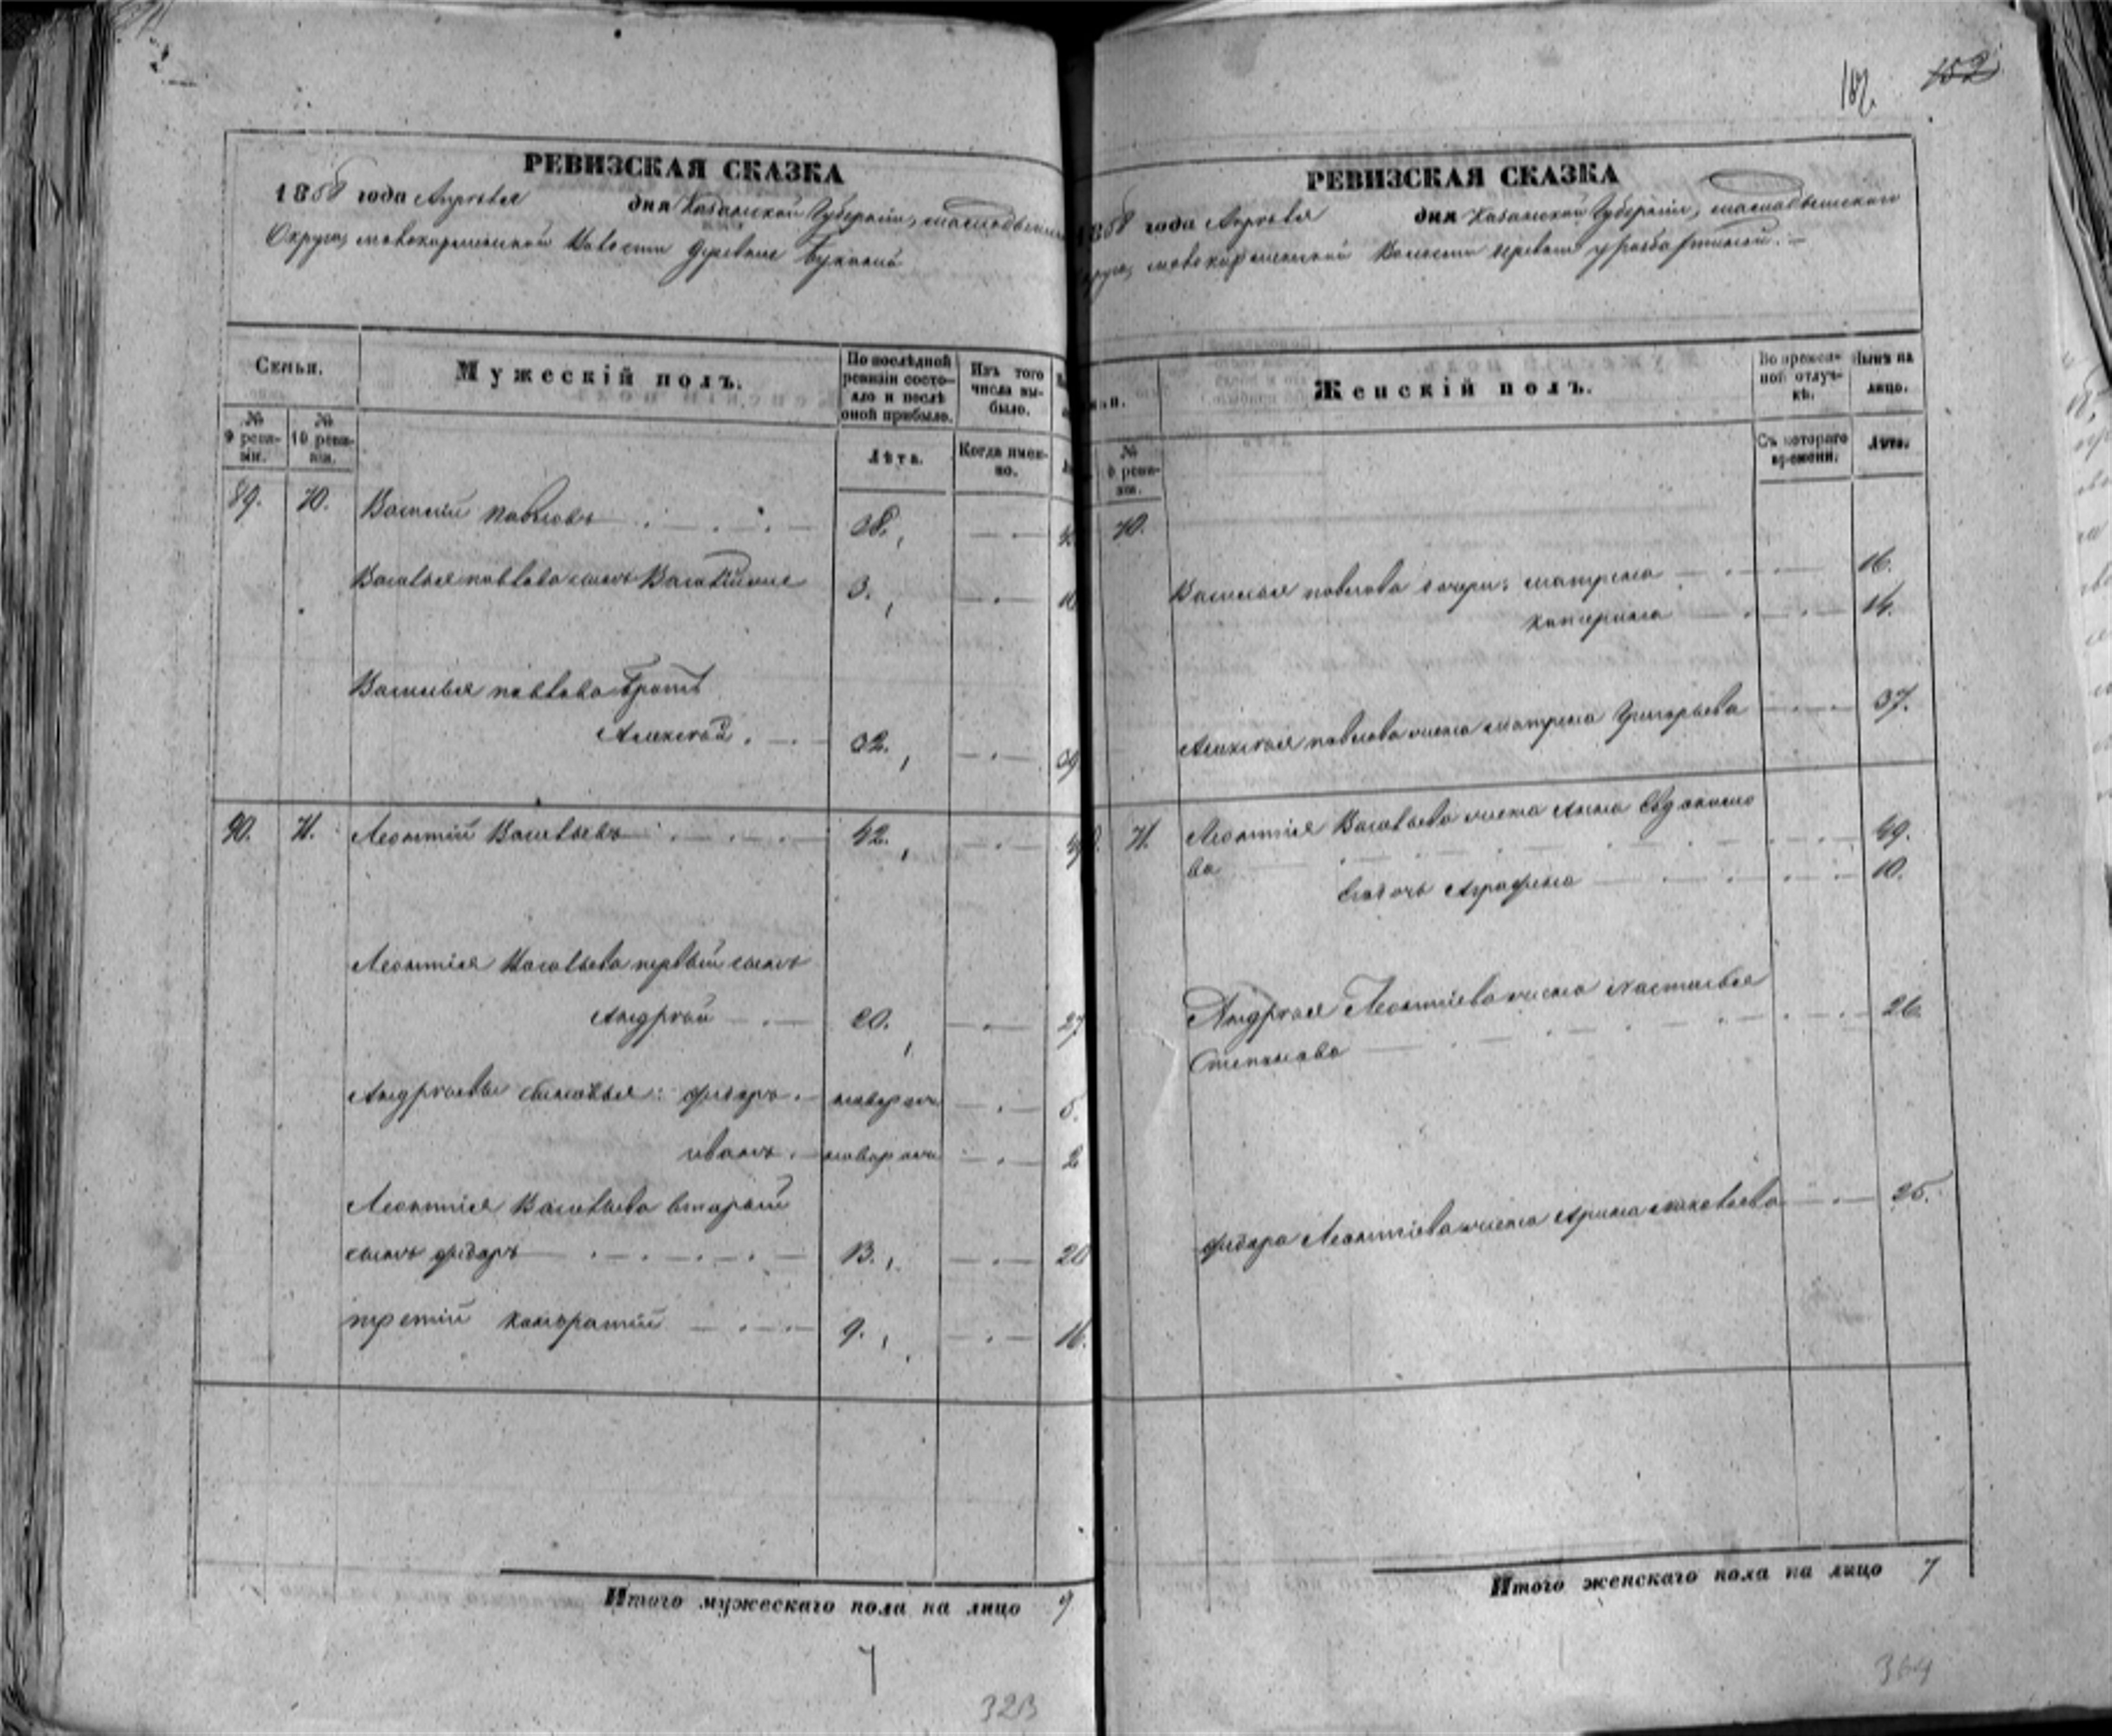 РЕВИЗСКАЯ СКАЗКА
1858 года Апреля дня Казанской Губернии,
Округа, Волости деревни
Семьи.
Мужескій полъ.
По послѣдней ревизіи состояло и послѣ оной прибыло.
Изъ того числа выбыло.
№ 9 ревизіи.
№ 10 ревизіи.
Лѣта.
Когда именно.
89. 70. Василій Павловъ 38.
Василья Павлова сынъ 3.
Василья Павлова братъ
Алексѣй 32. 39
90. 71. Леонтій Васильевъ 42.
Леонтія Васильева первый сынъ
Андрей 20. 27
Андреевы сыновья: Федоръ 5.
Иванъ 2
Леонтія Васильева вторый
сынъ Федоръ 13. 20
третій Кондратій 9. 16.
Итого мужескаго пола на лицо 9
323
152
РЕВИЗСКАЯ СКАЗКА
1858 года Апреля дня Казанской Губерніи,
Волости деревни
Женскій полъ.
Во временной отлучкѣ.
Нынѣ на лицо.
№ ревизіи.
Съ котораго времени.
Лѣта.
70.
Василья Павлова дочери: Матрена 16.
Катерина 14.
Алексѣя Павлова жена Матрена Григорьева 37.
71. Леонтія Васильева жена Анна Евдокимо
ва 49.
Агрофена 10.
Андрея Леонтіева жена Настасья
Степанова 26.
Федора Леонтіева жена Арина 25.
Итого женскаго пола на лицо 7
364